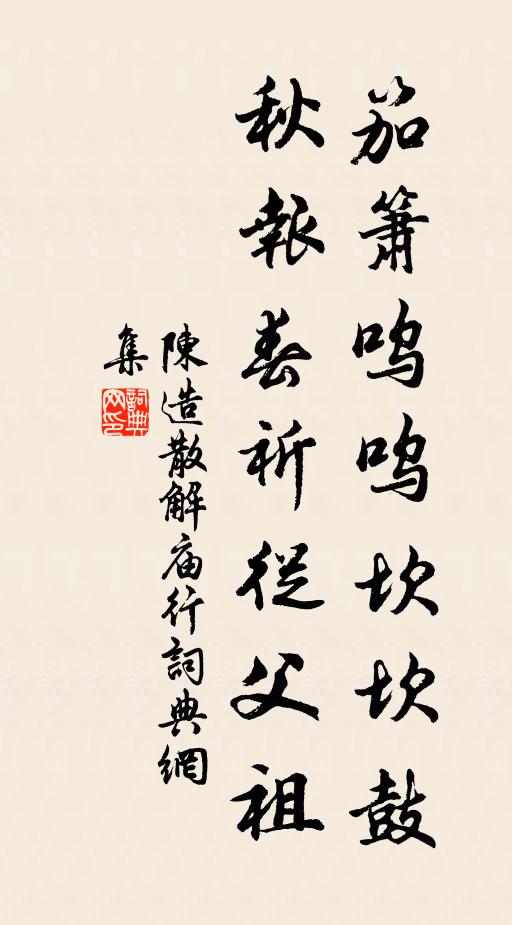 笳簫呜呜坎坎鼓
秋報春祈從父祖
陳造散解庙行詞典網
集
詞典
网印